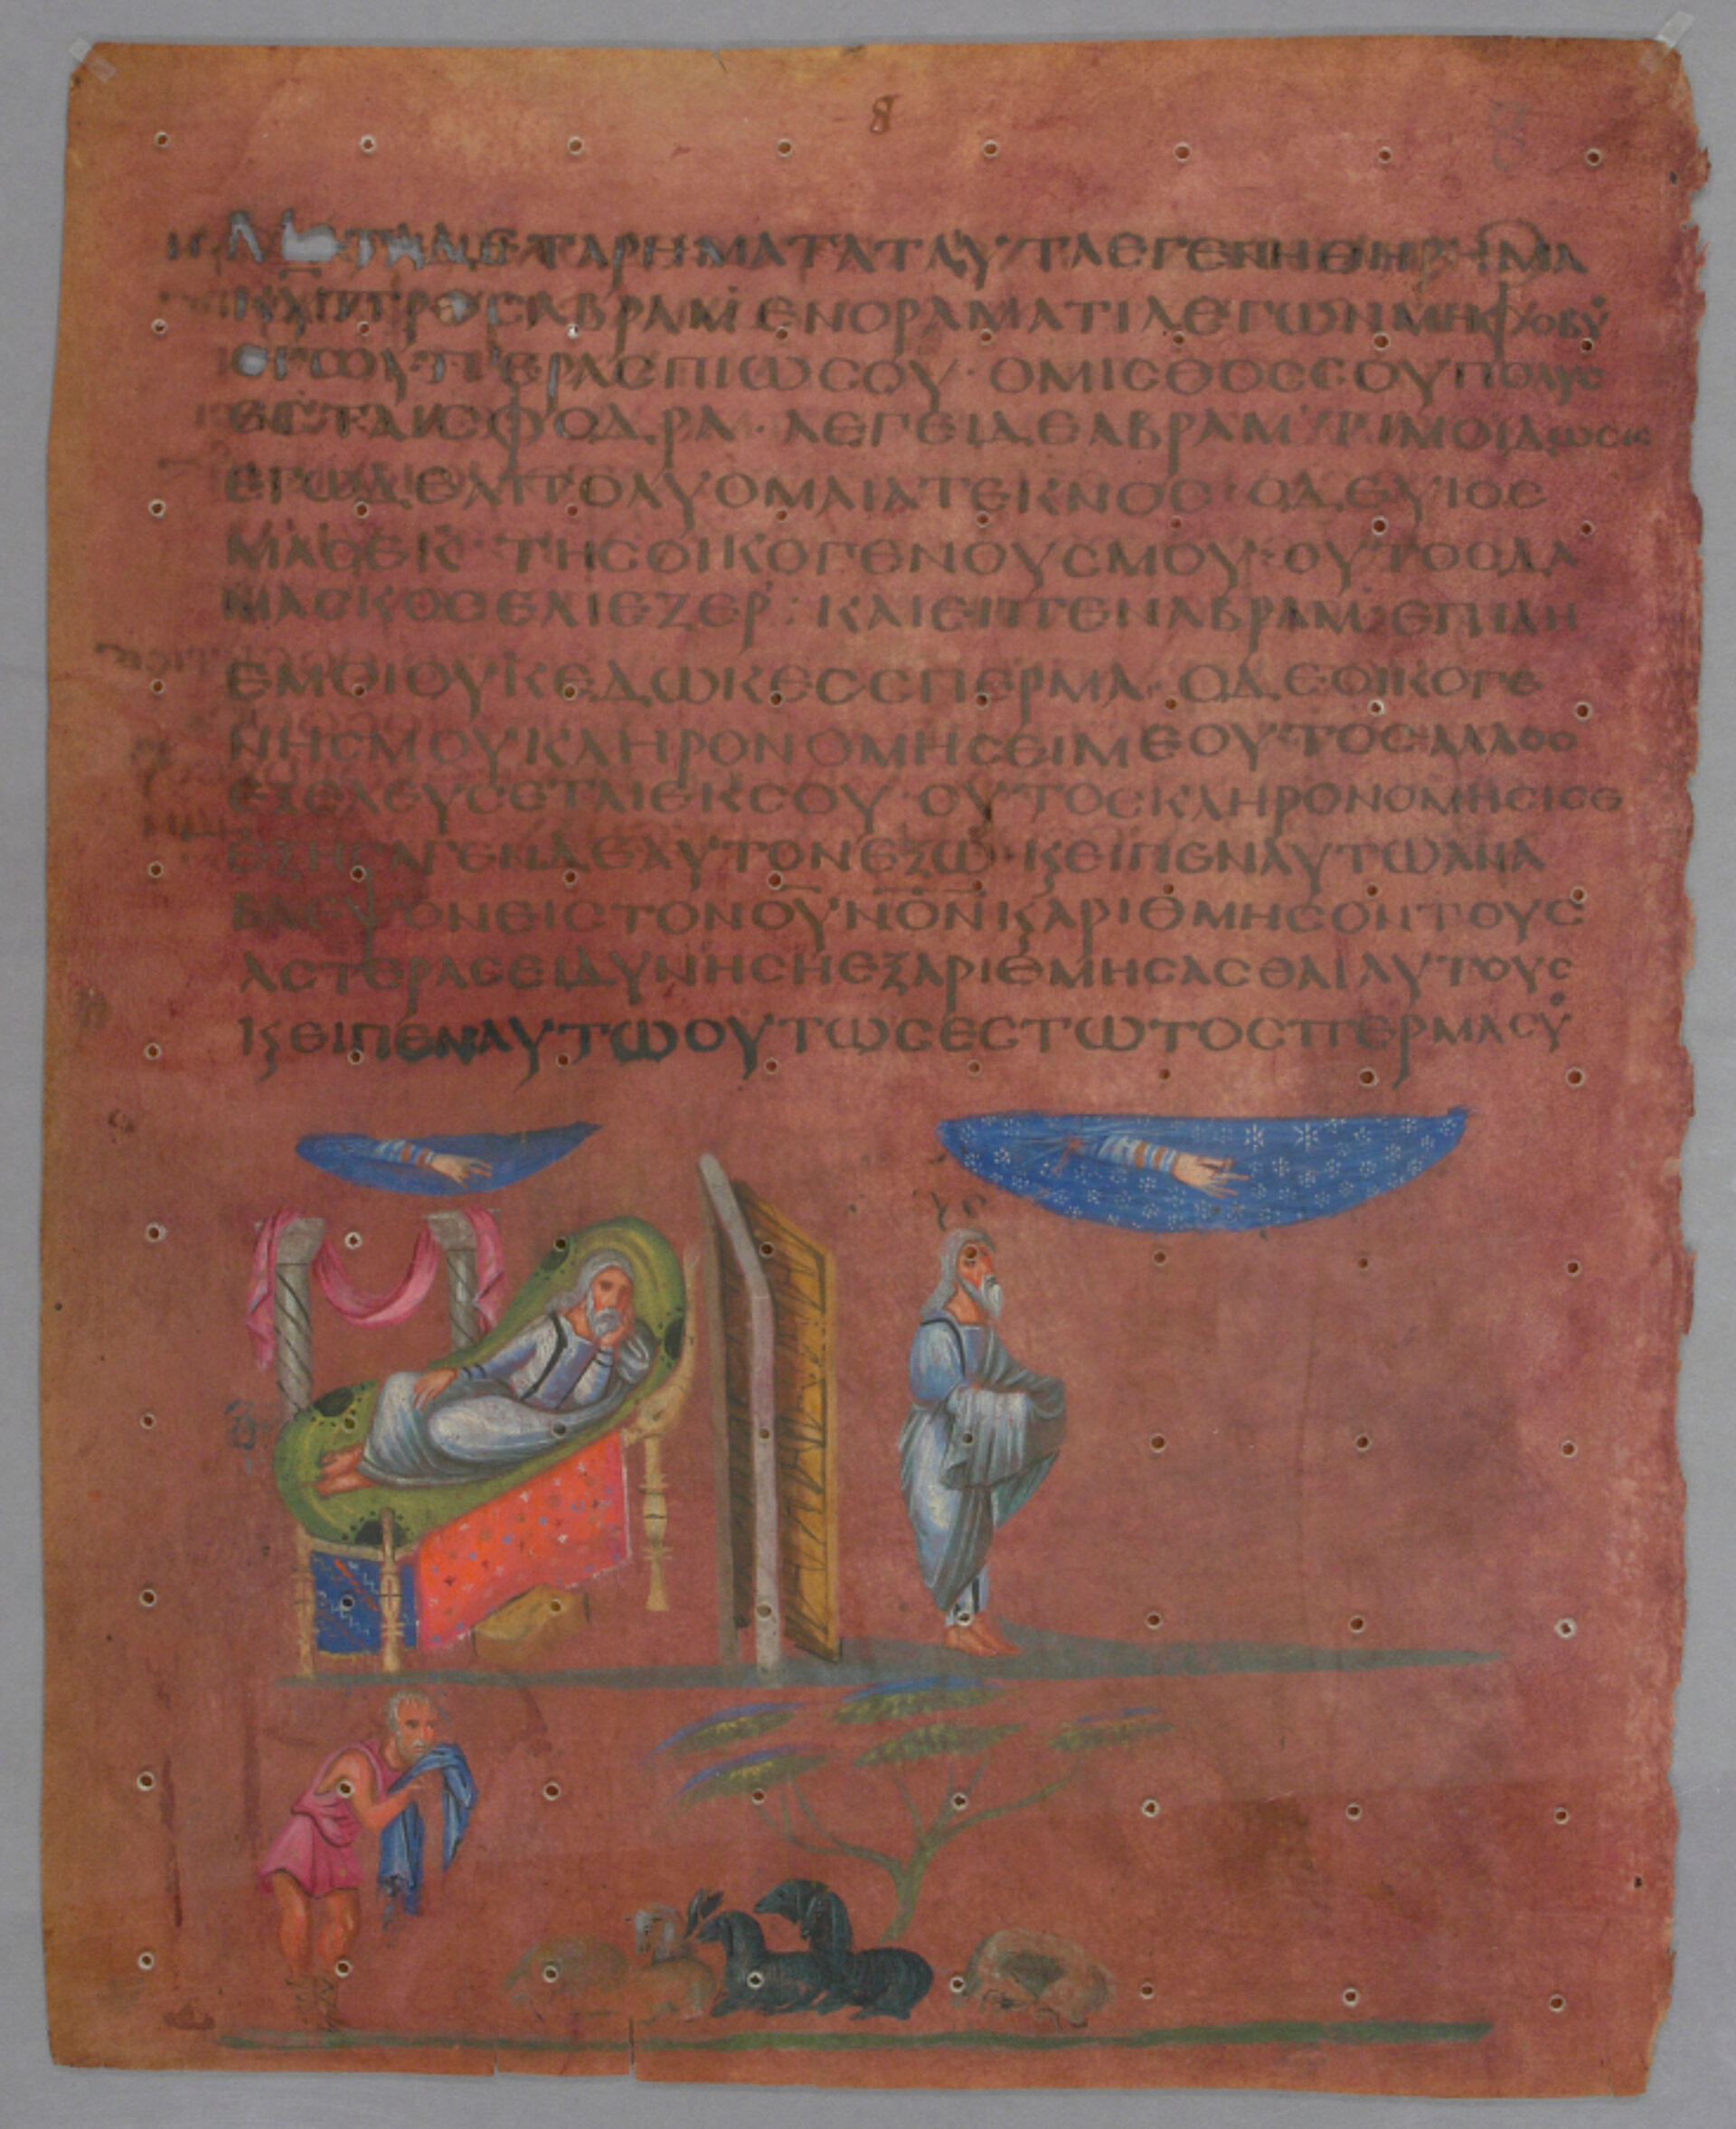 8
ΜΕΤΑΔΕΤΑΡΗΜΑΤΑΤΑΥΤΑΕΓΕΝΗΘΗΡΗΜΑ
ΚΥΠΡΟΣΑΒΡΑΜ ΕΝΟΡΑΜΑΤΙΛΕΓΩΝΜΗΦΟΒΥ
ΕΓΩΥΠΕΡΑСΠΙΩСΟΥ· ΟΜΙСΘΟССΟΥΠΟΛΥС
ΕСΤΑΙСΦΟΔΡΑ· ΛΕΓΕΙΔΕΑΒΡΑΜ ΤΙΜΟΙΔΩСΙС
ΕΓΩΔΕΑΠΟΛΥΟΜΑΙΑΤΕΚΝΟС· ΟΔΕΥΙΟС
ΜΑСΕΚ ΤΗСΟΙΚΟΓΕΝΟΥСΜΟΥ· ΟΥΤΟСΔΑ
ΜΑСΚΟСΕΛΙΕΖΕΡ: ΚΑΙΕΙΠΕΝΑΒΡΑΜ· ΕΠΙΔΗ
ΕΜΟΙΟΥΚΕΔΩΚΕССΠΕΡΜΑ· ΟΔΕΟΙΚΟΓΕ
ΝΗСΜΟΥΚΛΗΡΟΝΟΜΗСΕΙΜΕΟΥΤΟСΑΛΛΟС
ΕΞΕΛΕΥСΕΤΑΙΕΚСΟΥ ΟΥΤΟСΚΛΗΡΟΝΟΜΗСΙСΕ
ΕΞΗΓΑΓΕΝΔΕΑΥΤΟΝΕΞΩ· ϗΕΙΠΕΝΑΥΤΩΑΝΑ
ΒΛΕΨΟΝΕΙСΤΟΝΟΥΝΟΝϗΑΡΙΘΜΗСΟΝΤΟΥС
ΑСΤΕΡΑСΕΙΔΥΝΗСΗΕΞΑΡΙΘΜΗСΑСΘΑΙΑΥΤΟΥС
ϗΕΙΠΕΝΑΥΤΩΟΥΤΩСΕСΤΩΤΟСΠΕΡΜΑСΥ